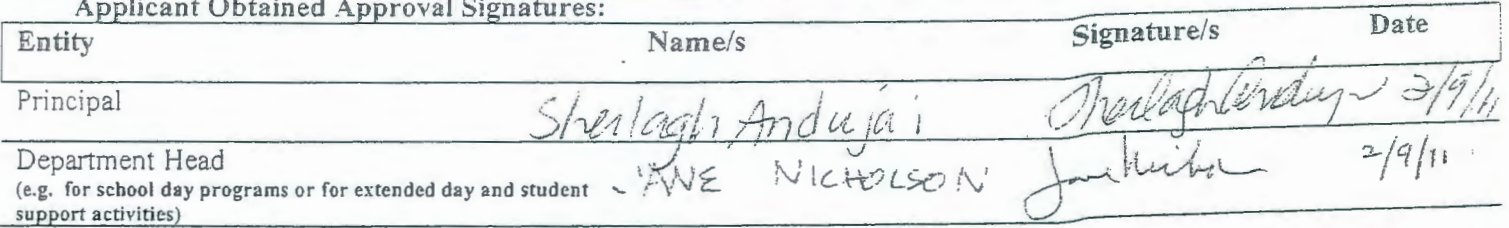 Applicant Obtained Approval Signatures:
Entity Name/s Signature/s Date
Principal Sheilagh Andujar Sheilagh Andujar 2/9/11
Department Head
(e.g. for school day programs or for extended day and student JANE NICHOLSON 2/9/11
support activities)